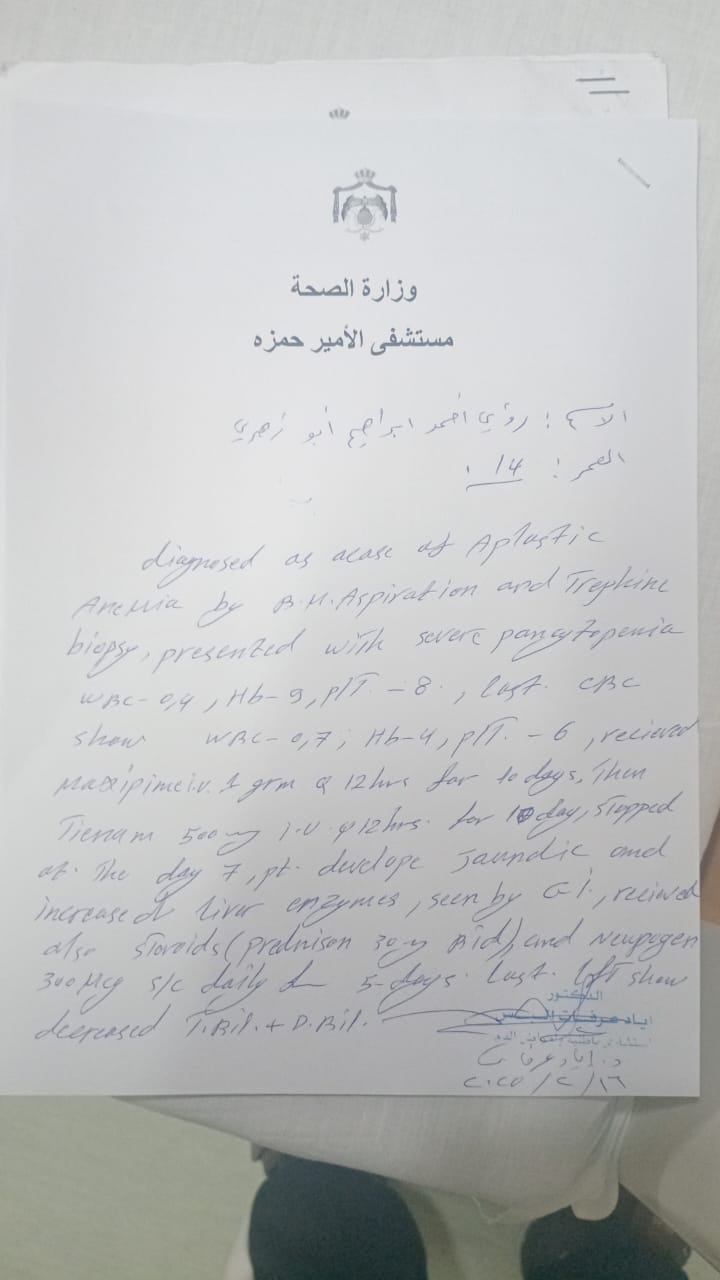 وزارة الصحة
مستشفى الأمير حمزه
الاسم : رؤي احمد ابراهيم أبو زهري
العمر : 14
diagnosed as acase of Aplastic
Anemia by B.M.Aspiration and Trephine
biopsy, presented with severe pancytopenia
WBC-0,4, Hb-9, plT.-8., last. CBC
show WBC-0,7; Hb-4, plT.-6, recieved
Maxipime i.v. 1 grm Q 12hrs for 10 days, Then
Tienam 500mg i.v. q 12hrs. for 10 day, stopped
at. The day 7, pt. develope Jaundic and
increased liver enzymes, seen by GI., recieved
also steroids (prednison 30mg Bid), and Neupogen
300Mcg s/c daily 5-days. Last. lft show
decreased T.Bil.+D.Bil.
الدكتور
اياد عرفات
د. إياد عرفات
٢٠٢٥/٢/١٦